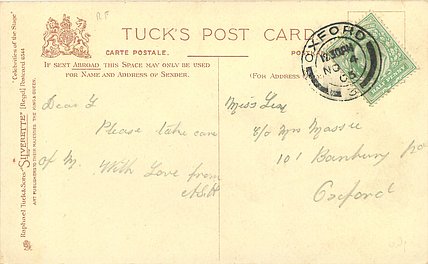 R.F
TUCK'S POST CARD
CARTE POSTALE.
IF SENT ABROAD THIS SPACE MAY ONLY BE USED
FOR NAME AND ADDRESS OF SENDER.
(FOR ADDRESS
OXFORD
NO
Dear
Please take care
of M. With Love from
Miss
c/o Mrs Massie
101 Banbury
Oxford
"Celebrities of the Stage"
Raphael Tuck & Sons' "SILVERETTE" [Regd.] Postcard
ART PUBLISHERS TO THEIR MAJESTIES THE KING & QUEEN.